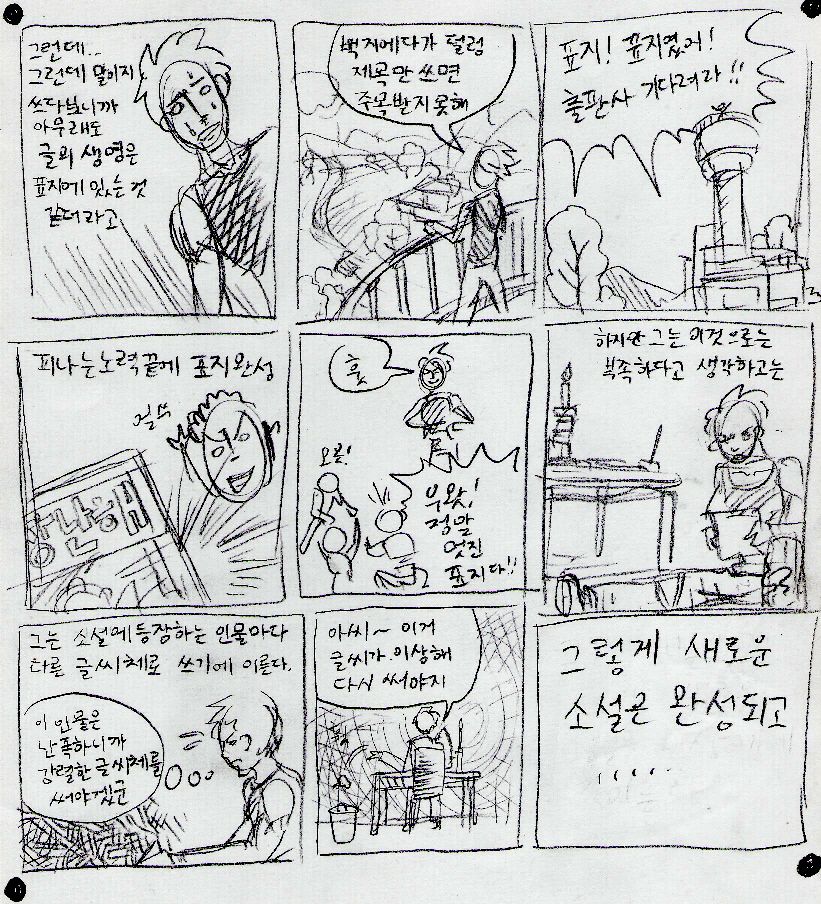 그런데..
그런데 말이지
쓰다보니까
아무래도
글의 생명은
표지에 있는 것
같더라고
백지에다가 덜렁
제목만 쓰면
주목받지 못해
표지! 표지였어!
출판사 기다려라!!
피나는 노력끝에 표지완성
훗
오옷!
우왓!
정말
멋진
표지다!!
하지만 그는 이것으로는
부족하다고 생각하고는
그는 소설에 등장하는 인물마다
다른 글씨체로 쓰기에 이른다.
이 인물은
난폭하니까
강렬한 글씨체를
써야겠군
아씨~ 이거
글씨가 이상해
다시 써야지
그렇게 새로운
소설은 완성되고
.....